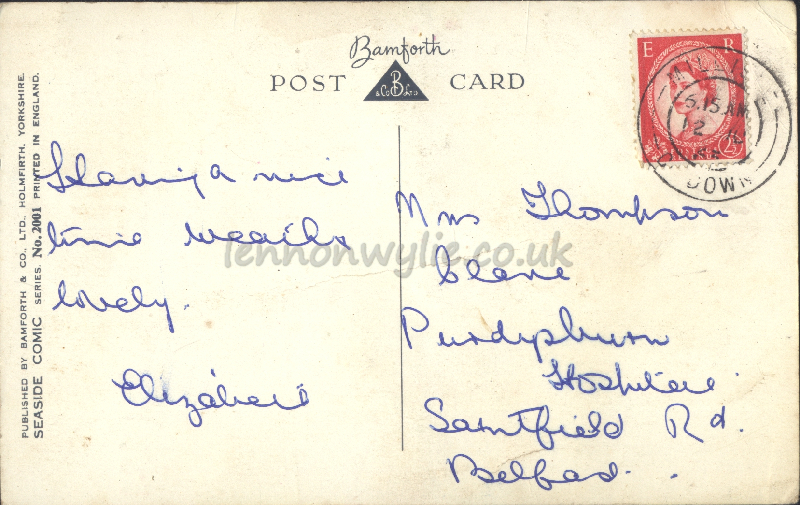 Bamforth
POST CARD
B
& Co LTD
E R
6.15 AM
12
DOWN
2½
PUBLISHED BY BAMFORTH & CO., LTD., HOLMFIRTH, YORKSHIRE.
SEASIDE COMIC SERIES. No. 2001 PRINTED IN ENGLAND.
Having a nice
time weather
lovely.
Elizabeth
Mrs Thompson
Clare
Purdysburn
Hospital
Saintfield Rd.
Belfast.
lennonwylie.co.uk